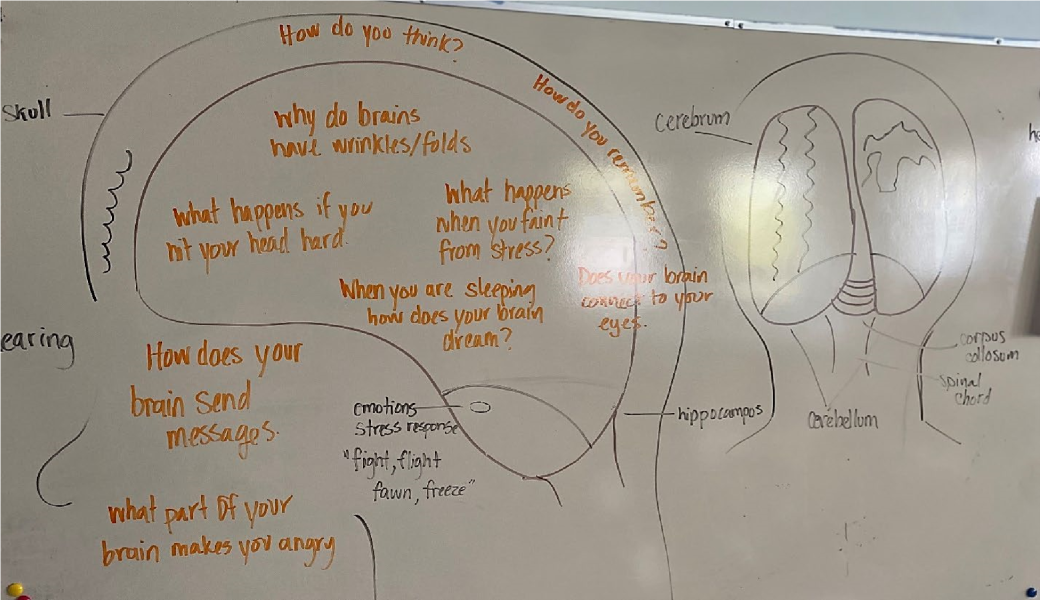 How do you think?
Skull
How do you remember?
why do brains
have wrinkles/folds
what happens if you
hit your head hard.
what happens
when you faint
from stress?
Does your brain
connect to your
eyes.
When you are sleeping
how does your brain
dream?
earing
How does your
brain send
messages.
emotions
stress response
"fight, flight
fawn, freeze"
hippocampos
what part of your
brain makes you angry
cerebrum
corpus
collosum
spinal
chord
cerebellum
he